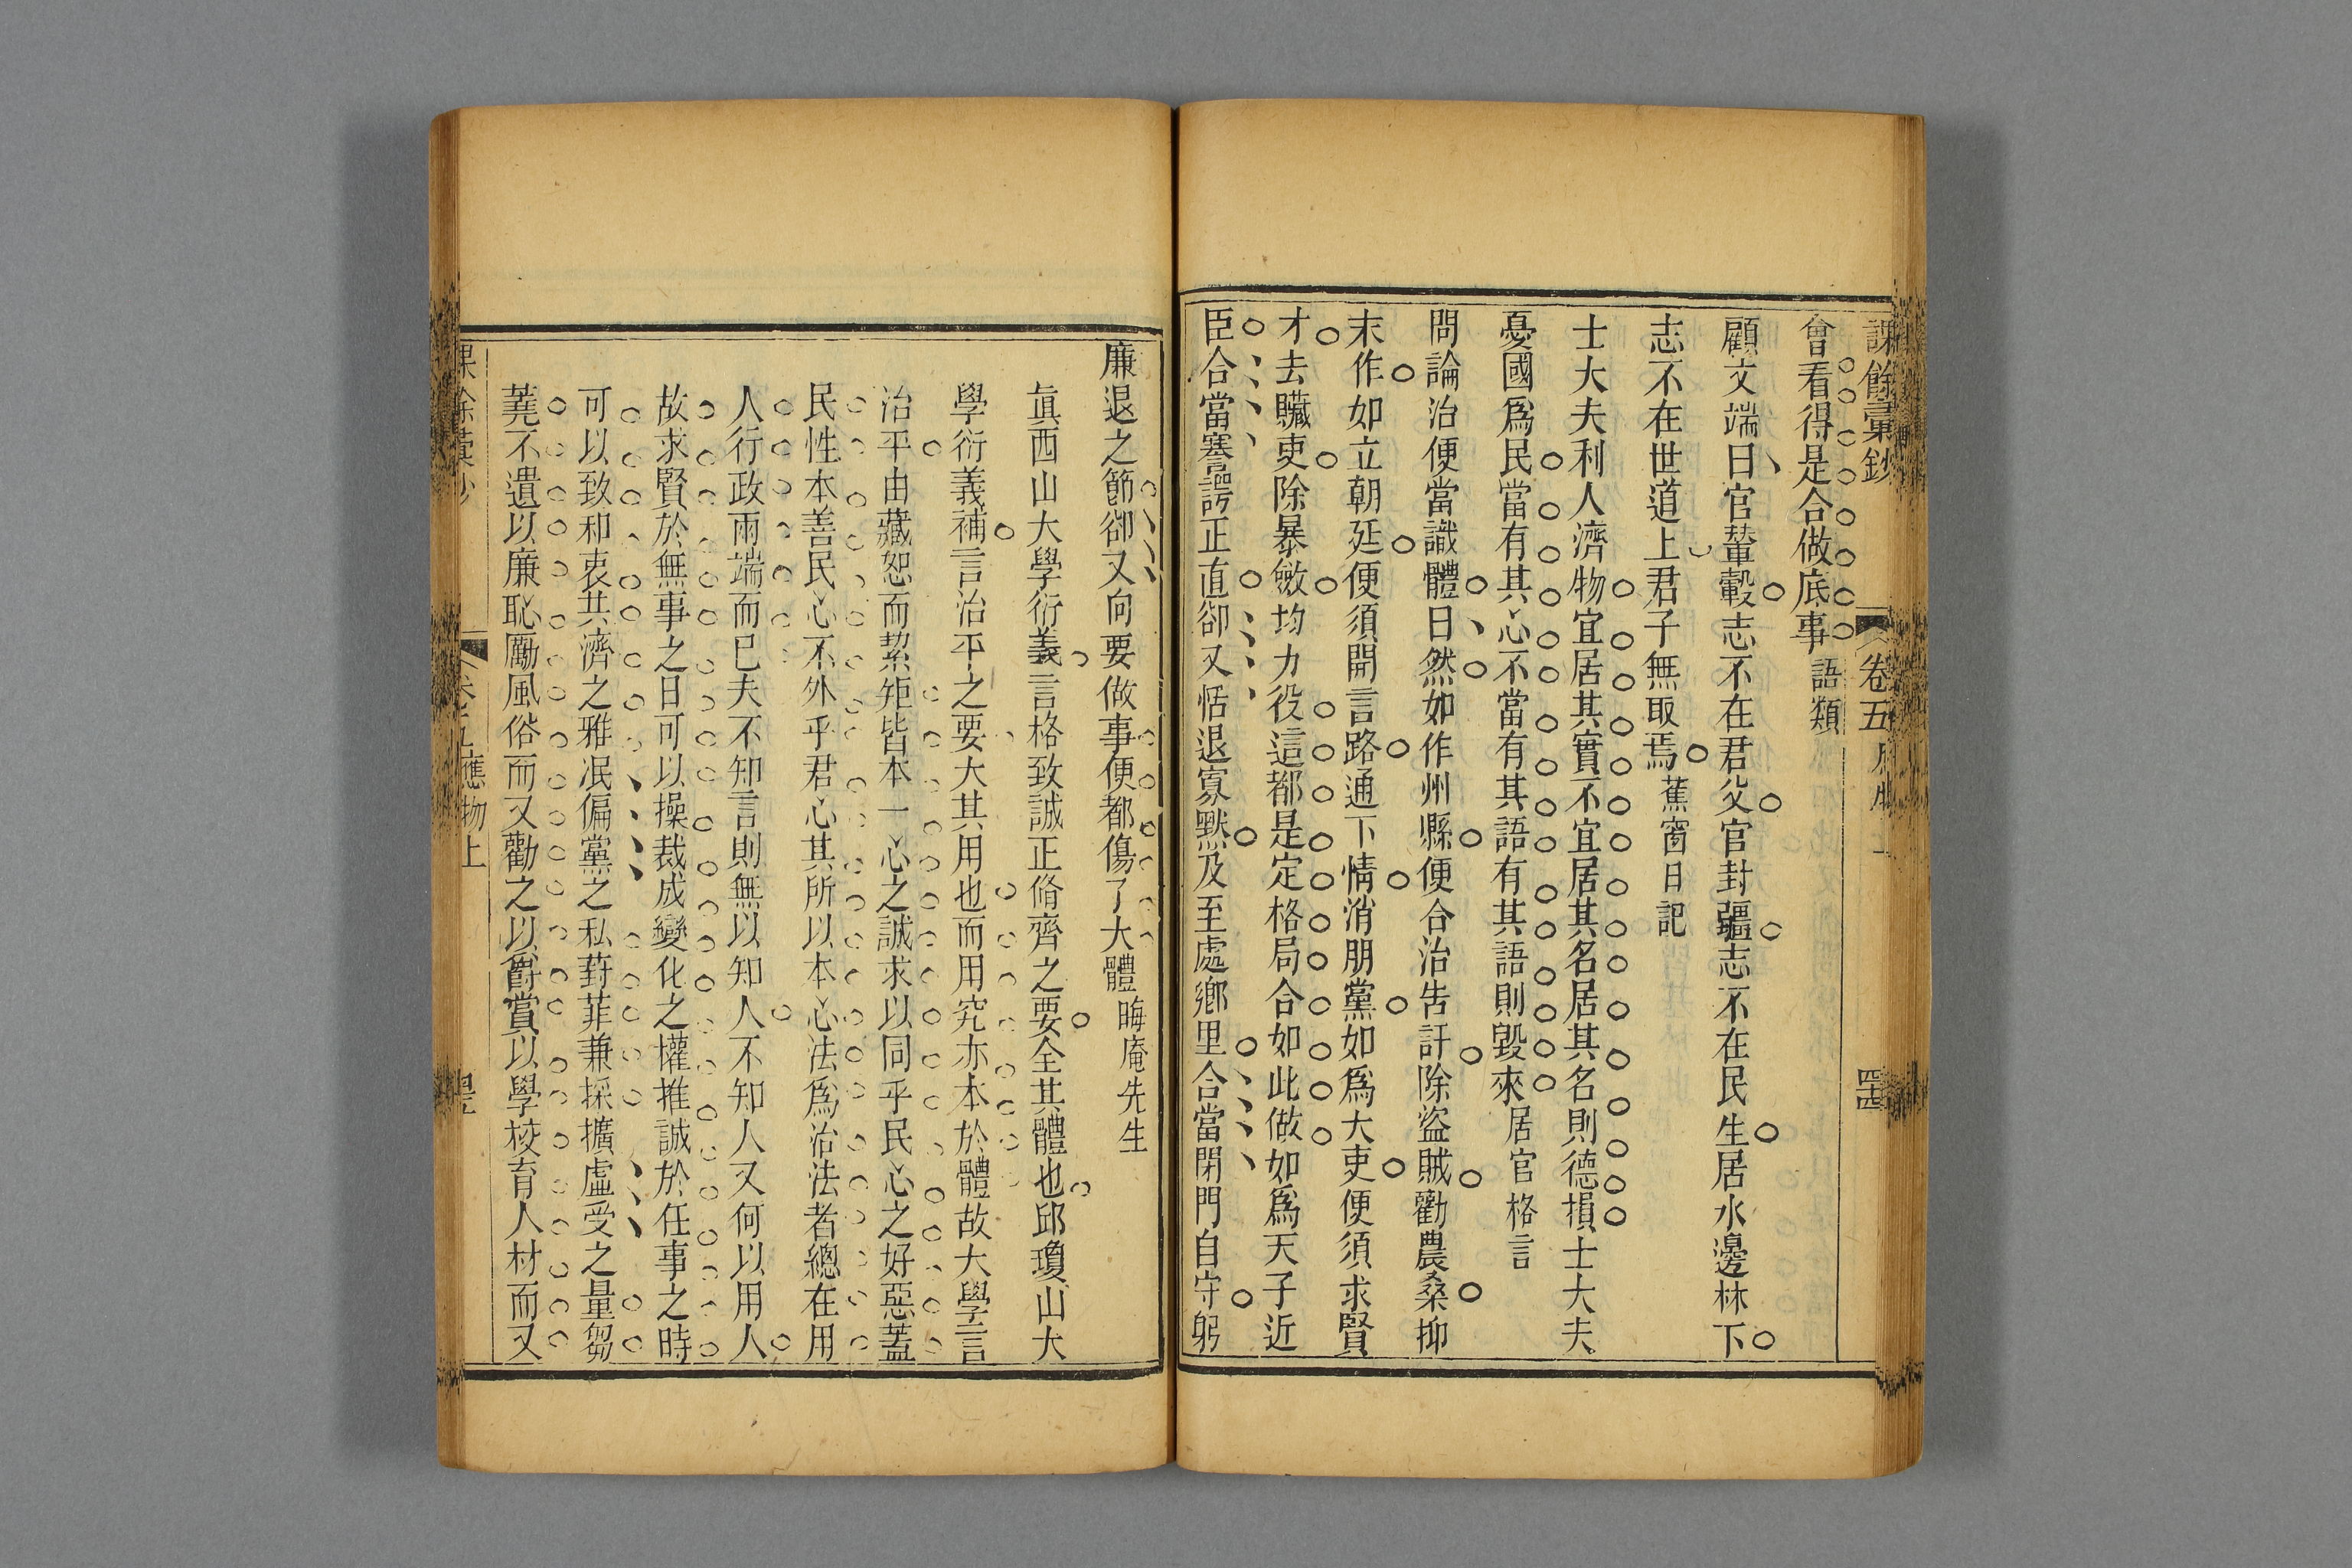 課餘彙鈔 卷五 四十四
會看得是合做底事 語類
顧文端曰官輦轂志不在君父官封疆志不在民生居水邊林下
志不在世道上君子無取焉 蕉窗日記
士大夫利人濟物宜居其實不宜居其名居其名則德損士大夫
憂國爲民當有其心不當有其語有其語則毀來 居官格言
問論治便當識體曰然如作州縣便合治告訐除盜賊勸農桑抑
末作如立朝廷便須開言路通下情消朋黨如爲大吏便須求賢
才去贓吏除暴斂均力役這都是定格局合如此做如爲天子近
臣合當謇諤正直卻又恬退寡默及至處鄉里合當閉門自守躬
廉退之節卻又向要做事便都傷了大體 晦庵先生
眞西山大學衍義言格致誠正脩齊之要全其體也邱瓊山大
學衍義補言治平之要大其用也而用究亦本於體故大學言
治平由藏恕而絜矩皆本一心之誠求以同乎民心之好惡蓋
民性本善民心不外乎君心其所以本心法爲治法者總在用
人行政兩端而已夫不知言則無以知人不知人又何以用人
故求賢於無事之日可以操裁成變化之權推誠於任事之時
可以致和衷共濟之雅泯偏黨之私葑菲兼採擴虛受之量芻
蕘不遺以廉恥勵風俗而又勸之以爵賞以學校育人材而又
應物上